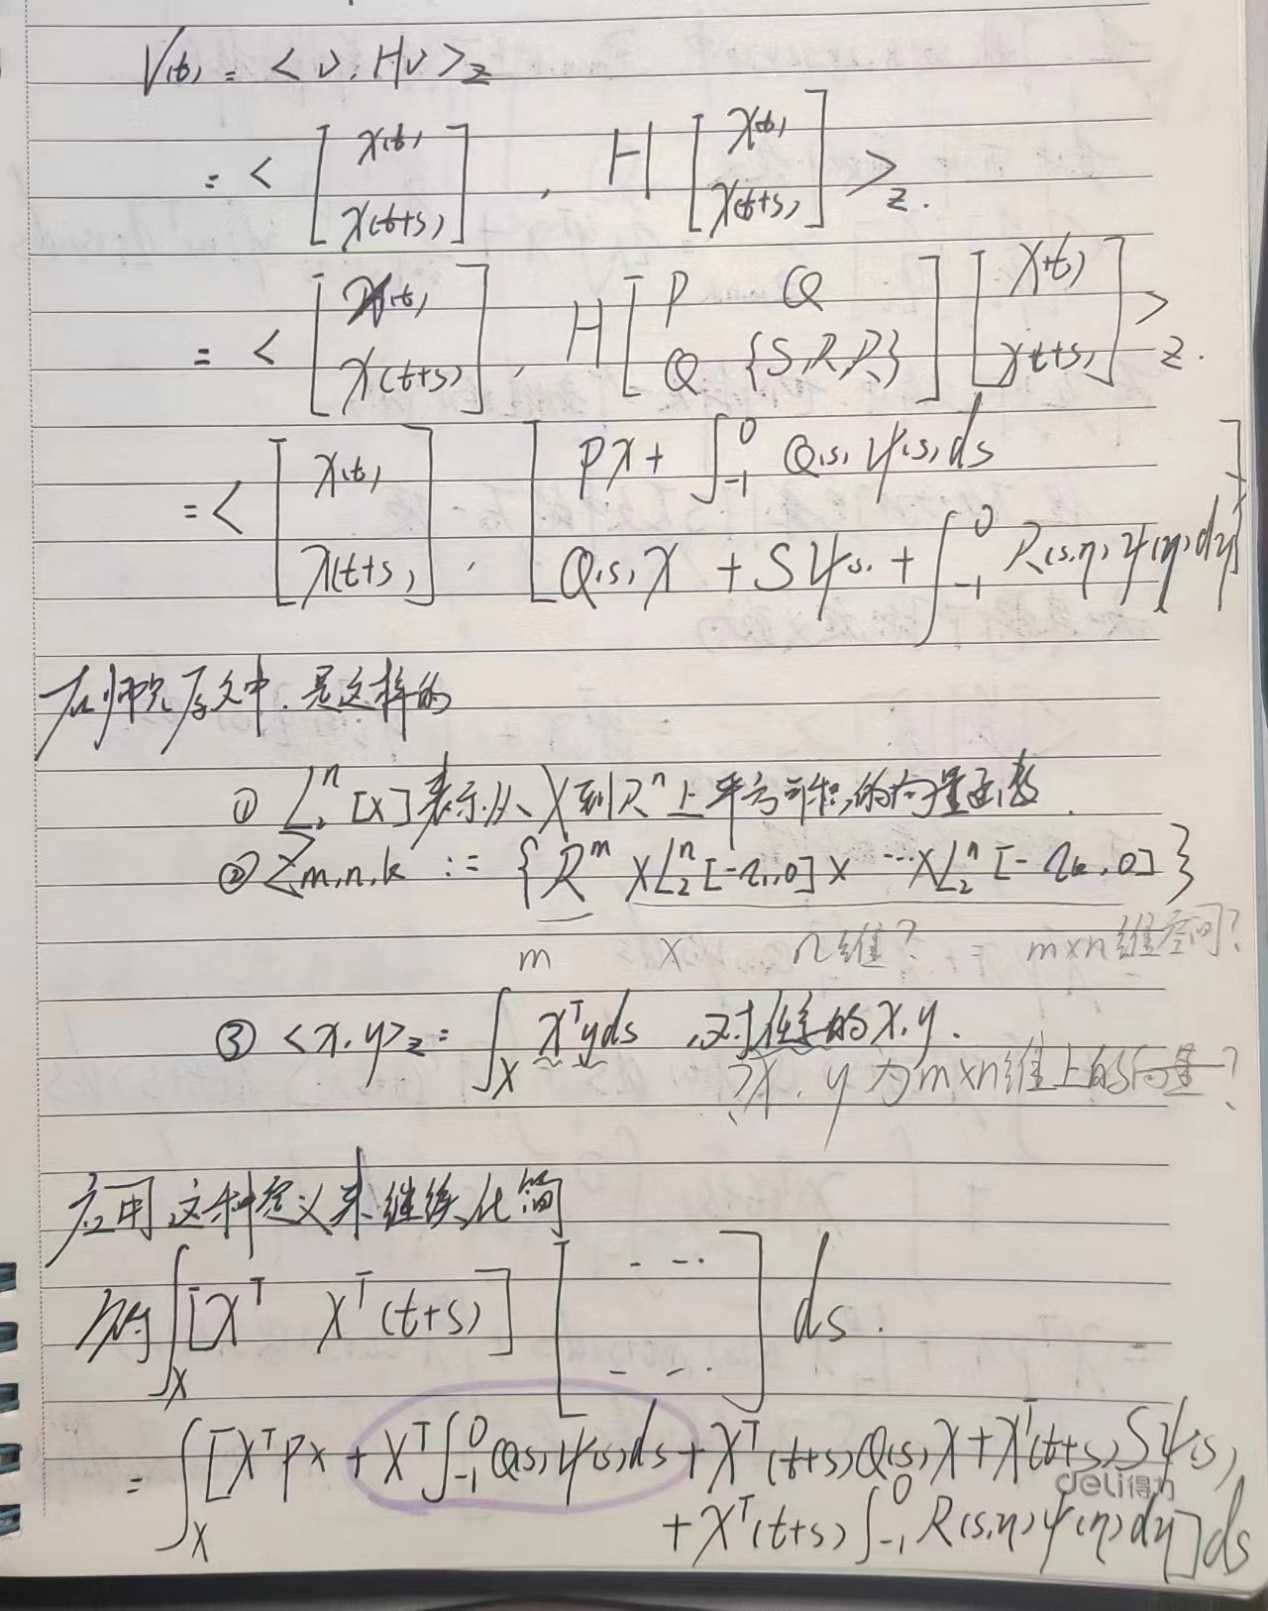 V(t) = <υ, Hυ>_Z
= < [x(t) ; x(t+s)], H [x(t) ; x(t+s)] >_Z.
= < [x(t) ; x(t+s)], H [P Q ; Q {S,R,R}] [x(t) ; x(t+s)] >_Z.
= < [x(t) ; x(t+s)], [Px + ∫_{-1}^{0} Q(s)ψ(s)ds ; Q(s)x + Sψ(s) + ∫_{-1}^{0} R(s,η)ψ(η)dη]
在师兄原文中.是这样的
① L_2^n[X]表示从X到R^n上平方可积的向量函数.
② Z_{m,n,k} := {R^m × L_2^n[-τ_1,0] × ··· × L_2^n[-τ_k,0]}
m × n维? = m×n维空间?
③ <x,y>_Z = ∫_X x^T y ds ,对任意的x.y.
x.y为m×n维上的向量?
应用这种定义来继续化简
∫_X [x^T x^T(t+s)] [- ··· ; - - ·] ds.
= ∫_X [x^T P x + x^T ∫_{-1}^{0} Q(s)ψ(s)ds + x^T(t+s)Q(s)x + x^T(t+s)Sψ(s)
deli得力
+ x^T(t+s) ∫_{-1}^{0} R(s,η)ψ(η)dη] ds